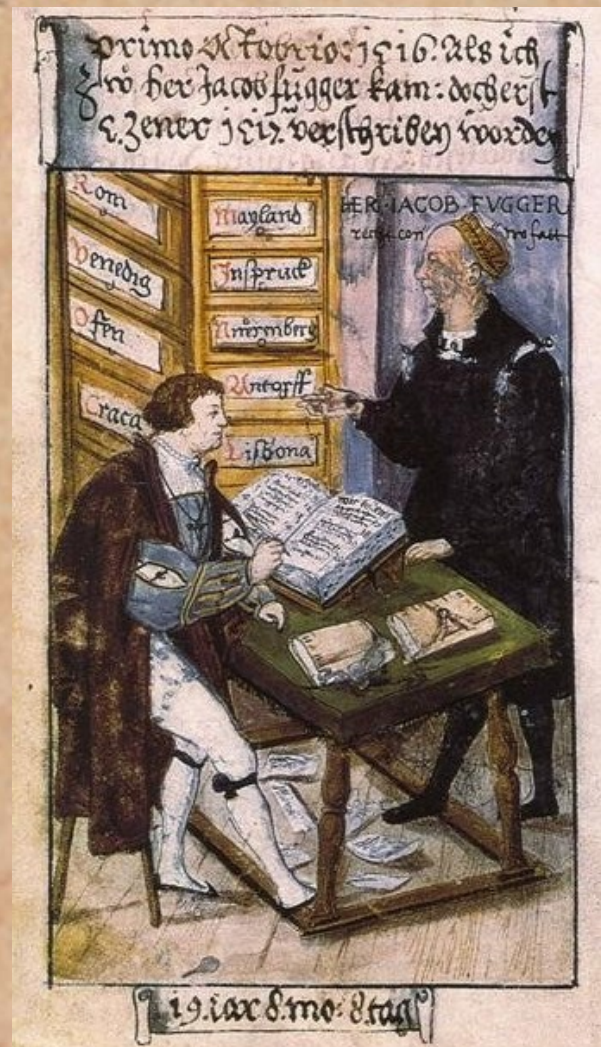 primo Octobrio: 1516. Als ich
zw her Jacob fugger kam: doch erst
5. Zener 1517. verschriben worden
Rom
Venedig
Ofen
Craca
Mayland
Inspruck
Nüerenberg
Antorff
Lisbona
HER IACOB FVGGER
19. iar 8. mo: 8 tag